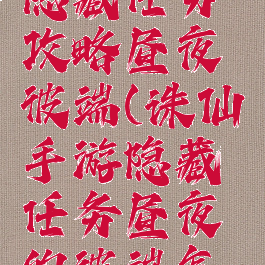 隐藏任务
攻略昼夜
彼端(诛仙
手游隐藏
任务昼夜
的彼端怎